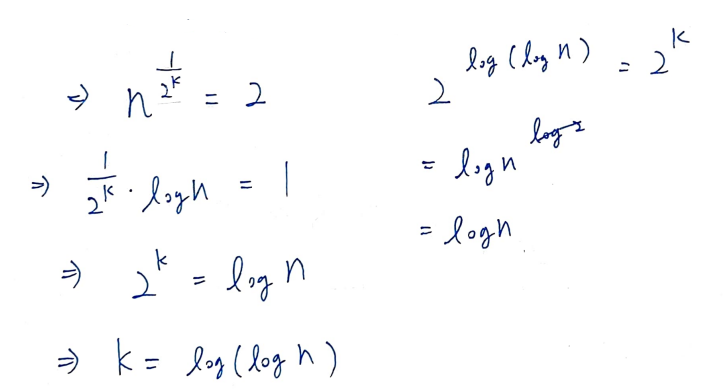 ⇒ n^{1/2^k} = 2
⇒ 1/2^k · log n = 1
⇒ 2^k = log n
⇒ k = log(log n)
2^{log(log n)} = 2^k
= log n^{log 2}
= log n